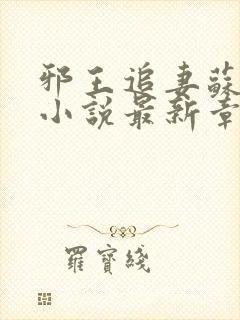 邪王追妻蘇
小說最新章
羅寶綫